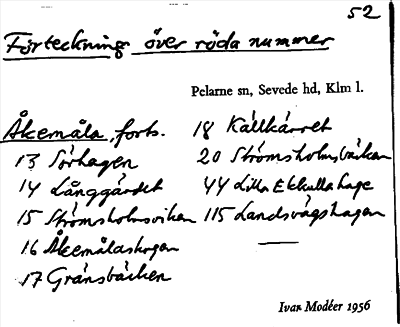 52
Förteckning över röda nummer
Pelarne sn, Sevede hd, Klm l.
Åkemåla, forts.
13 Sörhagen
14 Långgärdet
15 Strömsholmsviken
16 Åkemålaskogen
17 Gränsbäcken
18 Källkärret
20 Strömsholmsbäcken
44 Lilla Ekkulla hage
115 Landsvägshagen
Ivar Modéer 1956